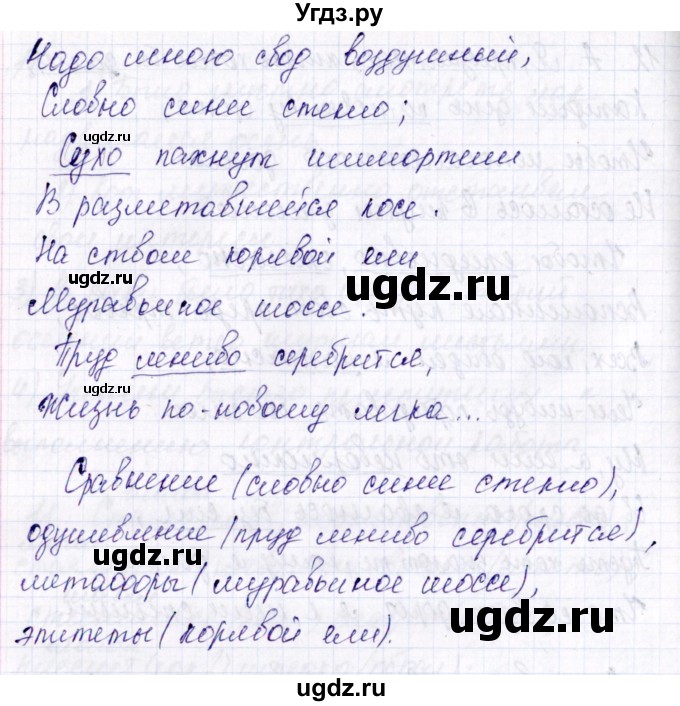 Угдз.ру
Надо мною свод воздушный,
Словно синее стекло;
Сухо пахнут иммортели
В разметавшейся косе.
На стволе корявой ели
Муравьиное шоссе.
Пруд лениво серебрится,
Жизнь по-новому легка...
Сравнение (словно синее стекло),
одушевление (пруд лениво серебрится),
метафоры (муравьиное шоссе),
эпитеты (корявой ели).
ugdz.ru
ugdz.ru
ugdz.ru
ugdz.ru
ugdz.ru
ugdz.ru
ugdz.ru
ugdz.ru
ugdz.ru
ugdz.ru